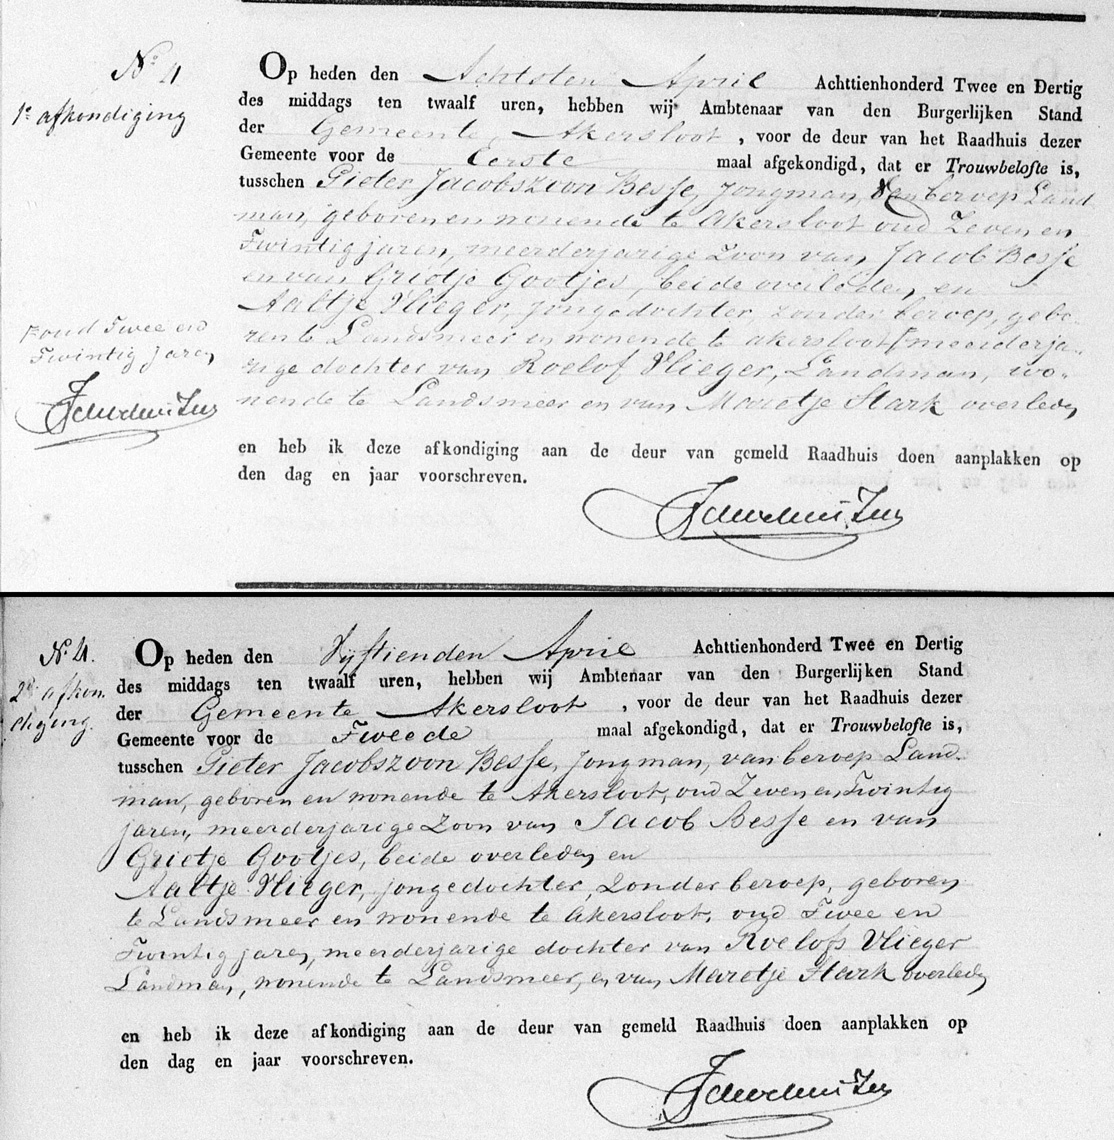 No 4
1e afkondiging
Op heden den Achtsten April Achttienhonderd Twee en Dertig
des middags ten twaalf uren, hebben wij Ambtenaar van den Burgerlijken Stand
der Gemeente Akersloot, voor de deur van het Raadhuis dezer
Gemeente voor de Eerste maal afgekondigd, dat er Trouwbelofte is,
tusschen Pieter Jacobszoon Besse, Jongman, van beroep Land
man, geboren en wonende te Akersloot oud Zeven en
Twintig jaren, meerderjarige Zoon van Jacob Besse
en van Grietje Gootjes, beide overleden, en
Aaltje Vlieger, Jongedochter, zonder beroep, gebo-
ren te Landsmeer en wonende te akersloot, meerderja-
rige dochter van Roelof Vlieger, Landman, wo-
nende te Landsmeer en van Maretje Stark overleden
oud Twee en
Twintig jaren
en heb ik deze afkondiging aan de deur van gemeld Raadhuis doen aanplakken op
den dag en jaar voorschreven.
No 4.
2de afkon.
diging.
Op heden den Vijftienden April Achttienhonderd Twee en Dertig
des middags ten twaalf uren, hebben wij Ambtenaar van den Burgerlijken Stand
der Gemeente Akersloot, voor de deur van het Raadhuis dezer
Gemeente voor de Tweede maal afgekondigd, dat er Trouwbelofte is,
tusschen Pieter Jacobszoon Besse, Jongman, van beroep Land-
man, geboren en wonende te Akersloot, oud Zeven en Twintig
jaren, meerderjarige Zoon van Jacob Besse en van
Grietje Gootjes, beide overleden en
Aaltje Vlieger, jongedochter, Zonder beroep, geboren
te Landsmeer en wonende te Akersloot, oud Twee en
Twintig jaren, meerderjarige dochter van Roelofs Vlieger
Landman, wonende te Landsmeer, en van Maretje Stark overleden
en heb ik deze afkondiging aan de deur van gemeld Raadhuis doen aanplakken op
den dag en jaar voorschreven.